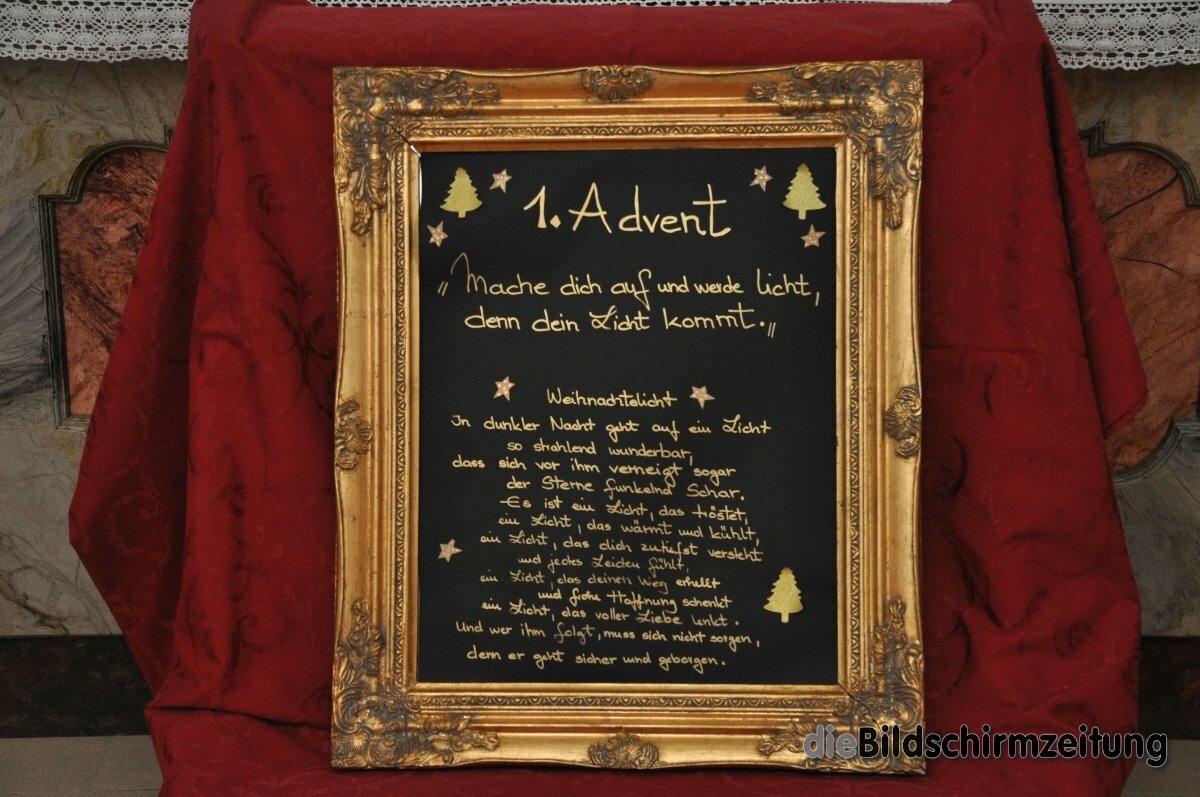 1. Advent
„Mache dich auf und werde licht,
denn dein Licht kommt."
Weihnachtslicht
In dunkler Nacht geht auf ein Licht
so strahlend wunderbar,
dass sich vor ihm verneigt sogar
der Sterne funkelnd Schar.
Es ist ein Licht, das tröstet,
ein Licht, das wärmt und kühlt,
ein Licht, das dich zutiefst versteht
und jedes Leiden fühlt,
ein Licht, das deinen Weg erhellt
und frohe Hoffnung schenkt
ein Licht, das voller Liebe lenkt.
Und wer ihm folgt, muss sich nicht sorgen,
denn er geht sicher und geborgen.
dieBildschirmzeitung